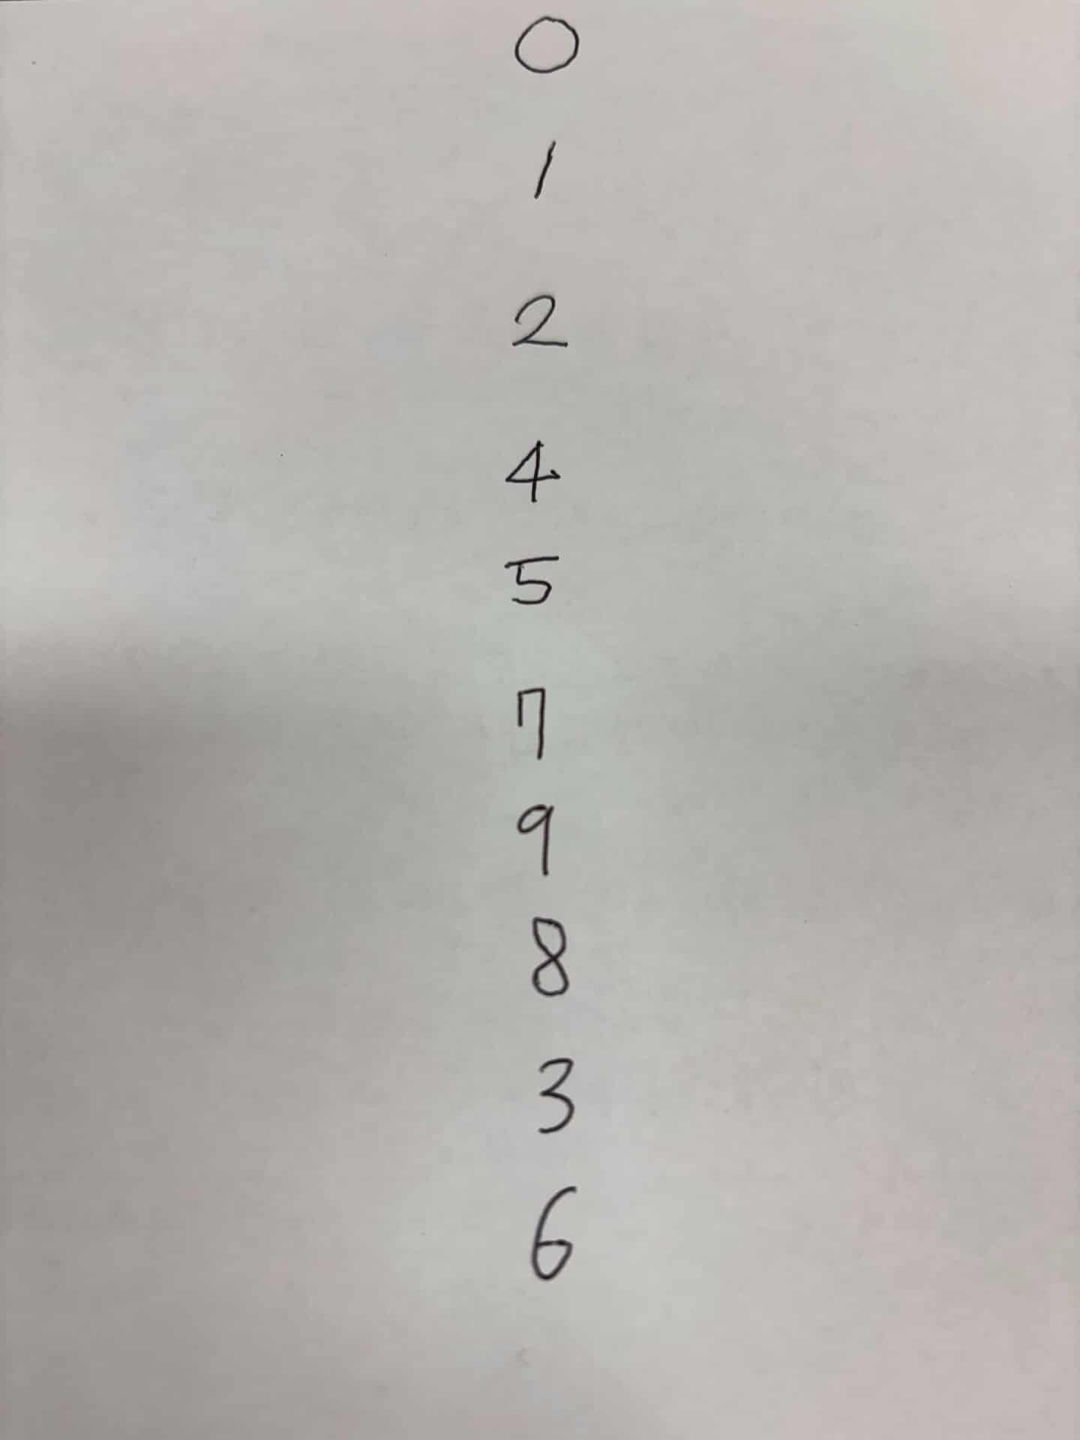 0
1
2
4
5
7
9
8
3
6